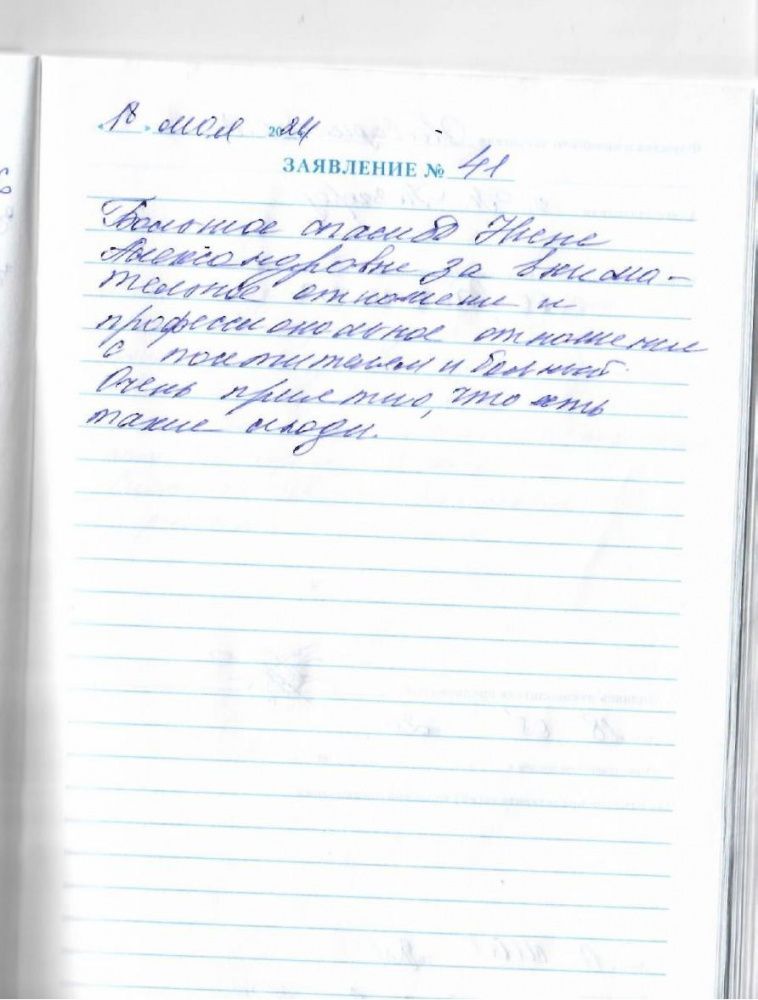 «18» мая 2024
ЗАЯВЛЕНИЕ № 41
Большое спасибо Нине
Александровне за внима-
тельное отношение и
профессиональное отношение
с посетителем и больным.
Очень приятно, что есть
такие люди.